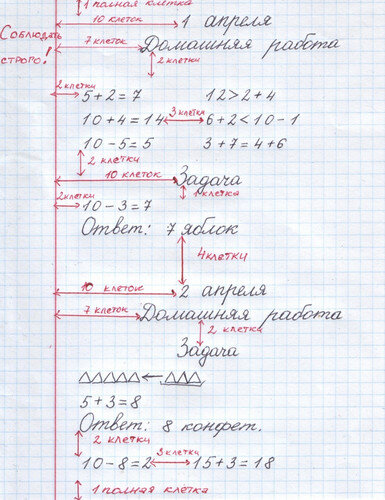 1 полная клетка
10 клеток 1 апреля
Соблюдать строго!
7 клеток Домашняя работа
2 клетки
2 клетки 5+2=7 12>2+4
10+4=14 3 клетки 6+2<10-1
10-5=5 3+7=4+6
2 клетки
10 клеток Задача
1 клетка
2 клетки 10-3=7
Ответ: 7 яблок
4 клетки
10 клеток 2 апреля
7 клеток Домашняя работа
2 клетки
Задача
5+3=8
Ответ: 8 конфет.
2 клетки
10-8=2 3 клетки 15+3=18
1 полная клетка